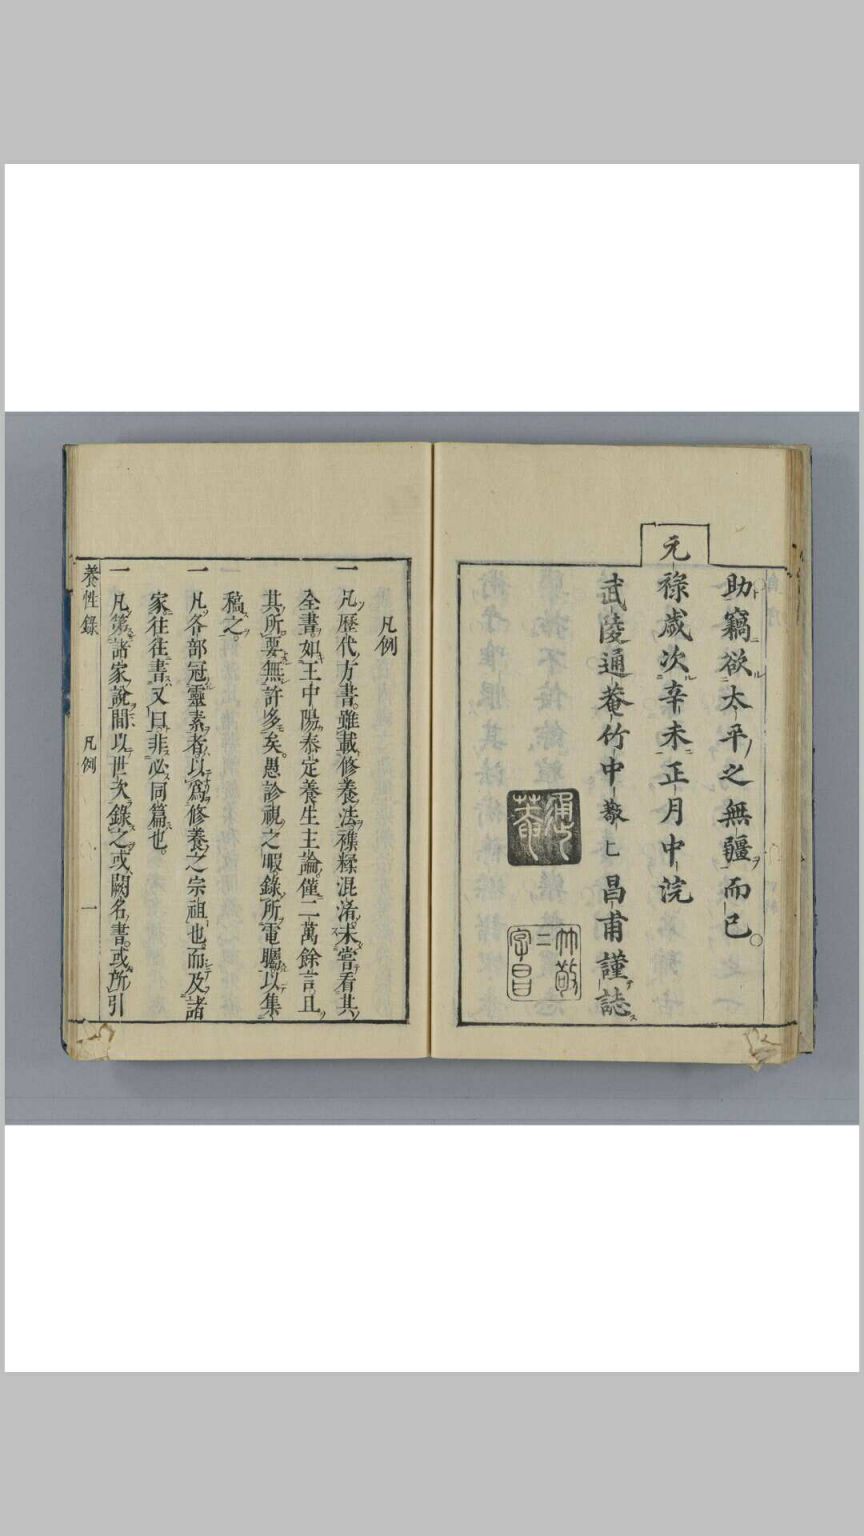 助竊欲太平之無疆而已。
元祿歲次辛未正月中浣
武陵通菴竹中敬昌甫謹誌
通菴
竹敬
字昌
凡例
一凡歷代方書雖載修養法襍糅混淆未嘗看其
全書如王中陽泰定養生主論僅二萬餘言且
其所要無許多矣愚診視之暇錄所電矚以集
稿之
一凡各部冠靈素者以為修養之宗祖也而及諸
家往往書又曰非必同篇也
一凡第諸家說間以世次錄之或闕名書或所引
養性錄 凡例 一